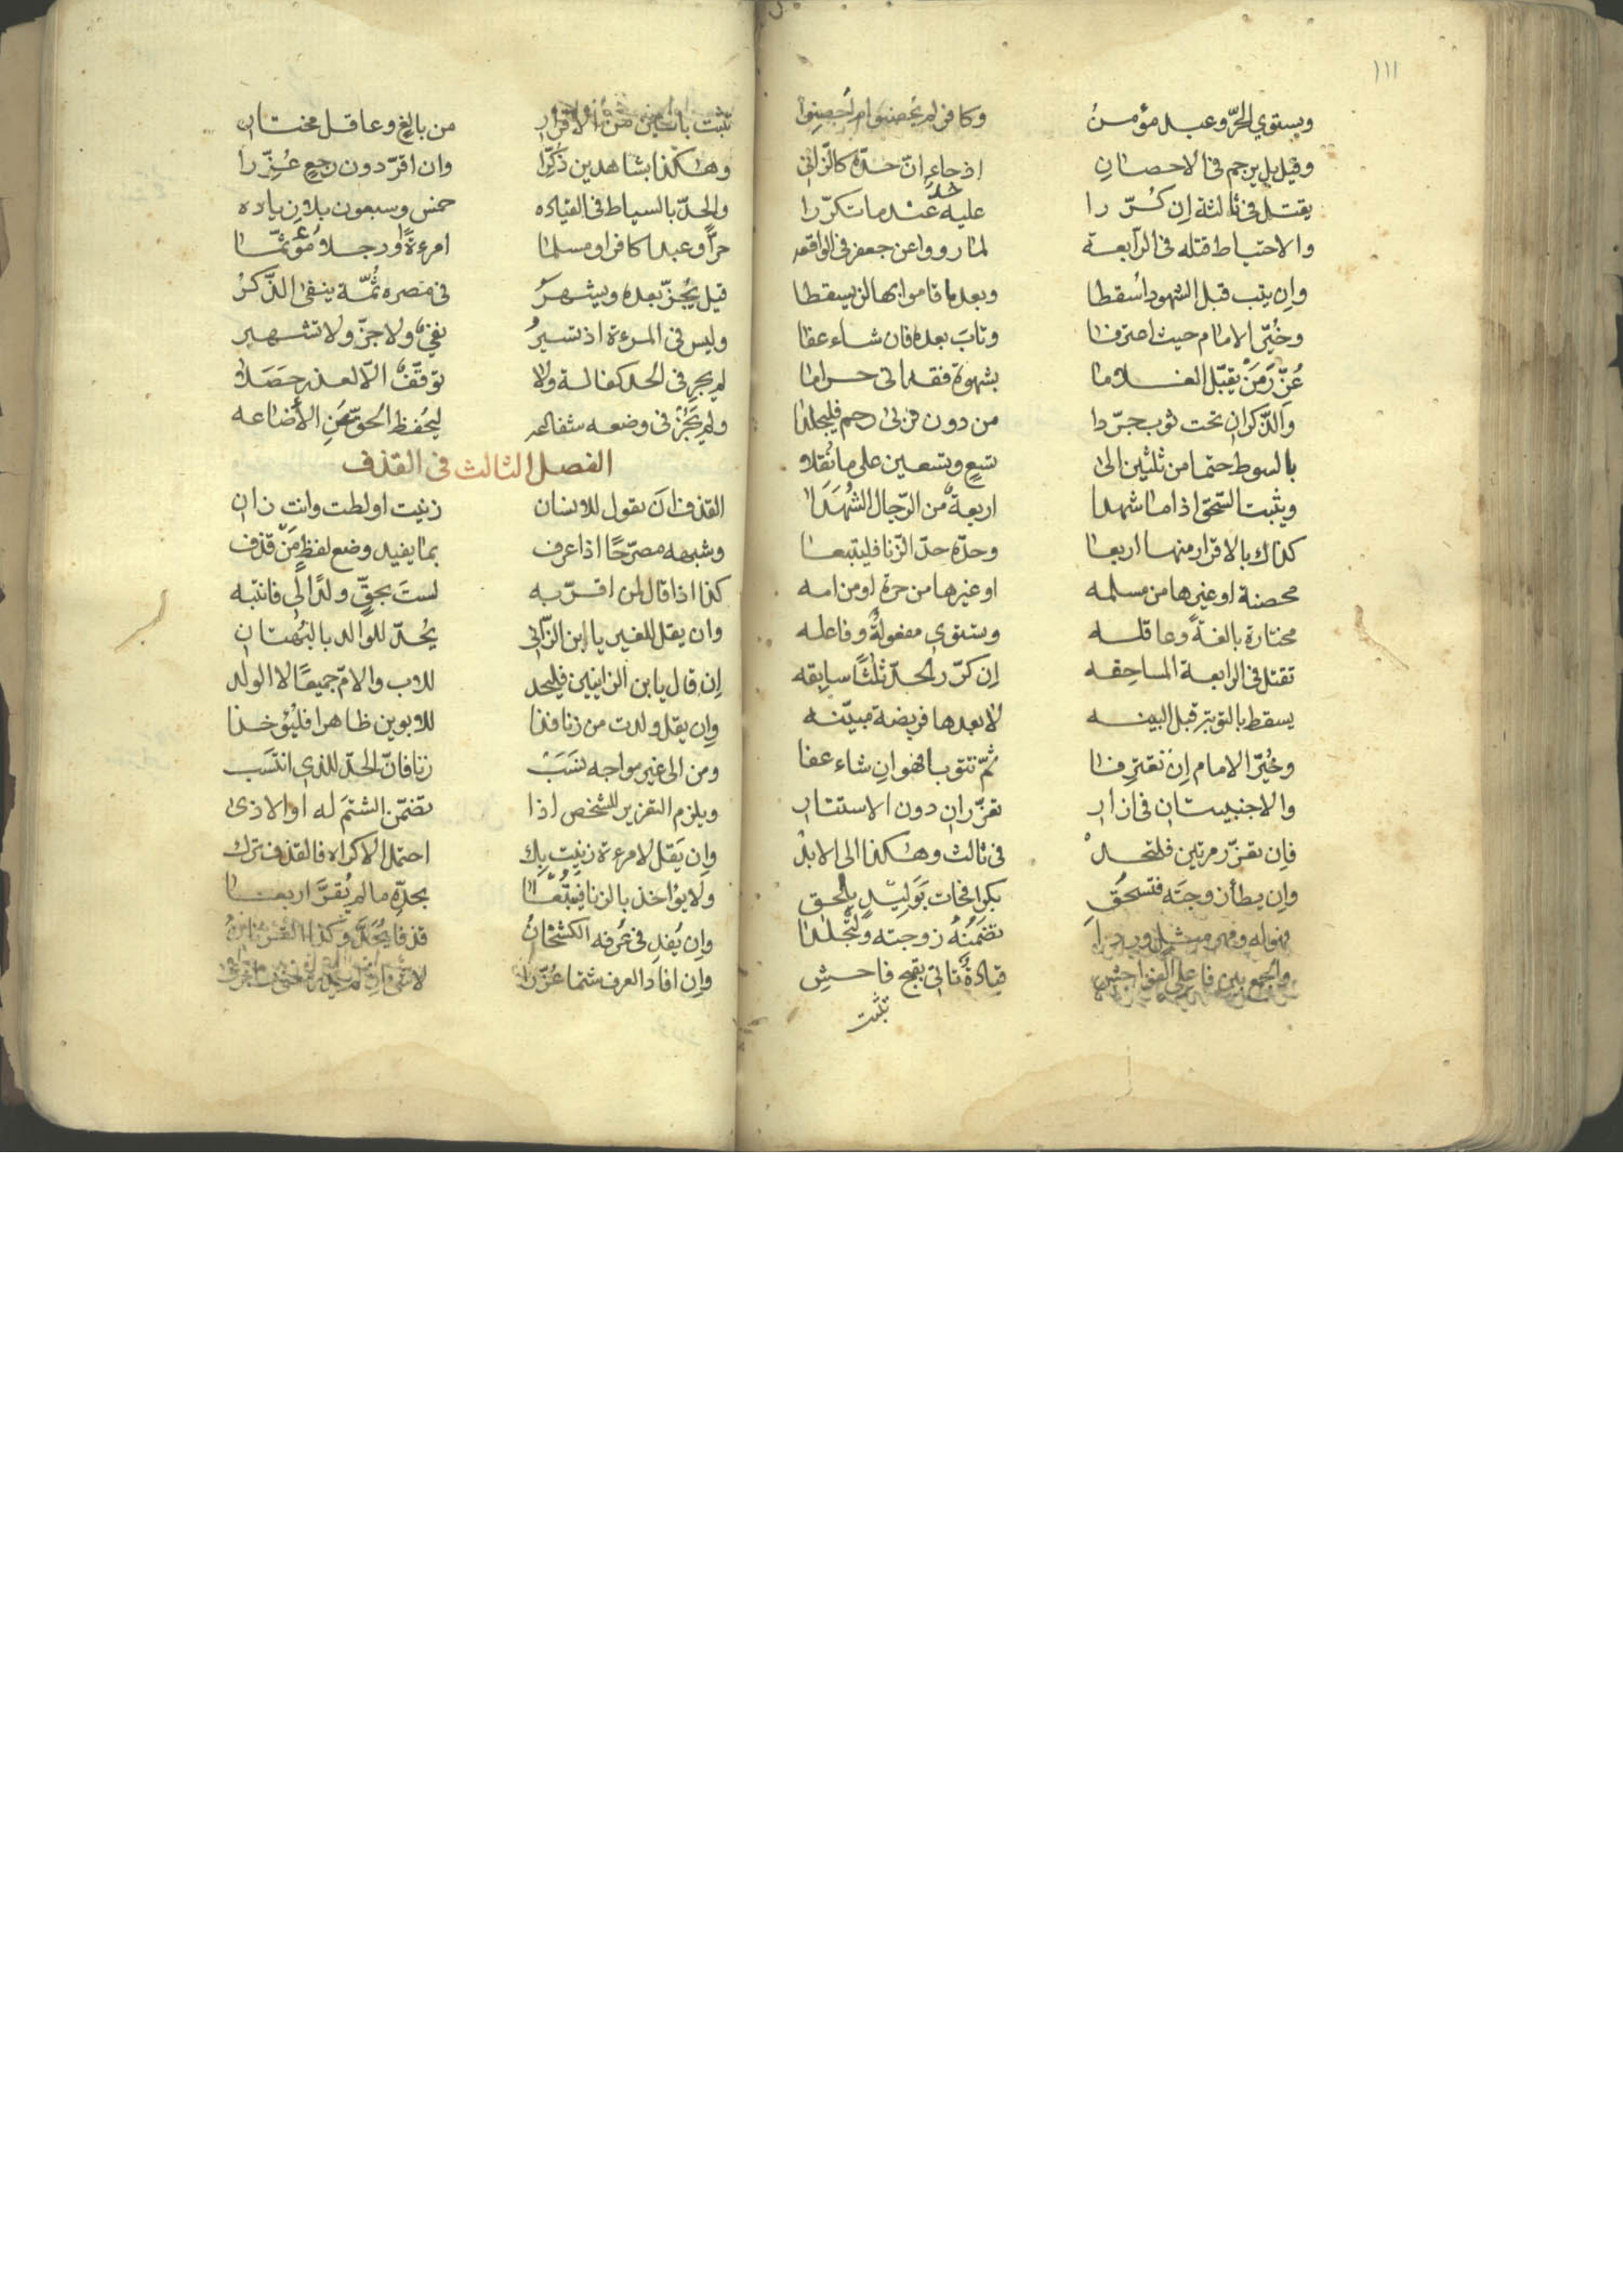 ١١١
ويستوي الحرّ وعبد مؤمنُ وكافر لم يحصنوا ام أحصِنوا
وقيل بل يرجم في الاحصانِ اذ جاء انّ حدّه كالزّاني
يقتل في ثالثة إن كُرّرا عليه حدّ عندما تكرّرا
والاحتياط قتله في الرّابعة لما رووا عن جعفر في الواقعه
وإن يتب قبل الشهود اُسقطا وبعد ما قاموا بها لن يسقطا
وخُيّر الامام حيث اعترفا وتابَ بعده فان شاء عفا
عُزّر مَنْ يقبّل الغلاما بشهوة فقد اتى حراما
والذّكران تحت ثوب جرّدا من دون قربى رحم فليجلدا
بالسوط حتما من ثلثين الى تسعٍ وتسعين على ما نُقلا
ويثبت السّحق اذا ما شهدا اربعةٌ من الرّجال الشُهَدا
كذاك بالاقرار منها اربعا وحدّه حدّ الزّنا فليتبعا
محصنة او غيرها من مسلمه او غيرها من حرة او من امه
مختارة بالغةً وعاقله وتستوي مفعولةٌ وفاعله
تقتل في الرابعة المساحِقه إن كرّر الحدّ ثلثًا سابقه
يسقط بالتوبة قبل البينه لا بعدها فريضة مبيّنه
وخُيّر الامام إن تعترفا ثمّ تتوب فهو ان شاء عفا
والاجنبيتان في ازار تعزّران دون الاستتار
فإن تعزّر مرتين فلتحدْ في ثالث وهكذا الى الابدْ
وإن يطأ زوجته فتسحَقِ بكرا فجات بوَليدٍ يلحق
فهو له ومهر مثل وردا تضمَنُهُ زوجته ولتُجلدا
والجمع بين فاعلي الفواحشِ قيادةٌ تأتي بقبح فاحشِ
تثبت
تثبت باثنين من الاقرار من بالغٍ وعاقل مختار
وهكذا بشاهدين ذُكّرا وان اقرّ دون رجع عُزّرا
والحدّ بالسياط في القياده خمس وسبعون بلا زياده
حرّاً وعبدا كافرا او مسلما امرءةً او رجلا
قيل يُجزّ بعده ويشهرُ في مصره ثُمّة ينفى الذّكرُ
وليس في المرءة اذ تسيرُ نفيٌ ولا جزّ ولا تشهير
لم يجرِ في الحد كفالة ولا توقّفٌ الّا لعذر حصَلا
ولم يَجُزْ في وضعه شفاعه ليُحفظ الحقّ عن الأضاعه
الفصل الثالث في القذف
القذف ان يقول للانسان زنيت او لطت وانت زان
وشبهه مصرّحًا اذا عرف بما يفيد وضع لفظٍ مَنْ قذف
كذا اذا قال لمن اقرّ به لستَ بحقّ ولدًا لي فانتبه
وان يقل للغير يا ابن الزّاني يُحدّ للوالد بالبُهتان
إن قال يابن الزانيين فليحد للاب والامّ جميعًا لا الولد
وإن يقل ولدت من زنا فذا للابوين ظاهرا فليُؤخذا
ومن الى غير مواجه نسَبَ زنا فانّ الحدّ للذي انتسَب
ويلزم التعزير للشخص اذا تضمّن الشتمَ له او الاذى
وإن يَقل لامرءة زنيتِ بِك احتمل الاكراه فالقذف ترك
ولا يؤاخذ بالزنا بحدّه ما لم يُقرَّ اربعا
وإن يُفدِ في عُرفه الكشخانُ قذفا يُحَدّ وكذا
وإن افاد العرف شتما عُزّرا